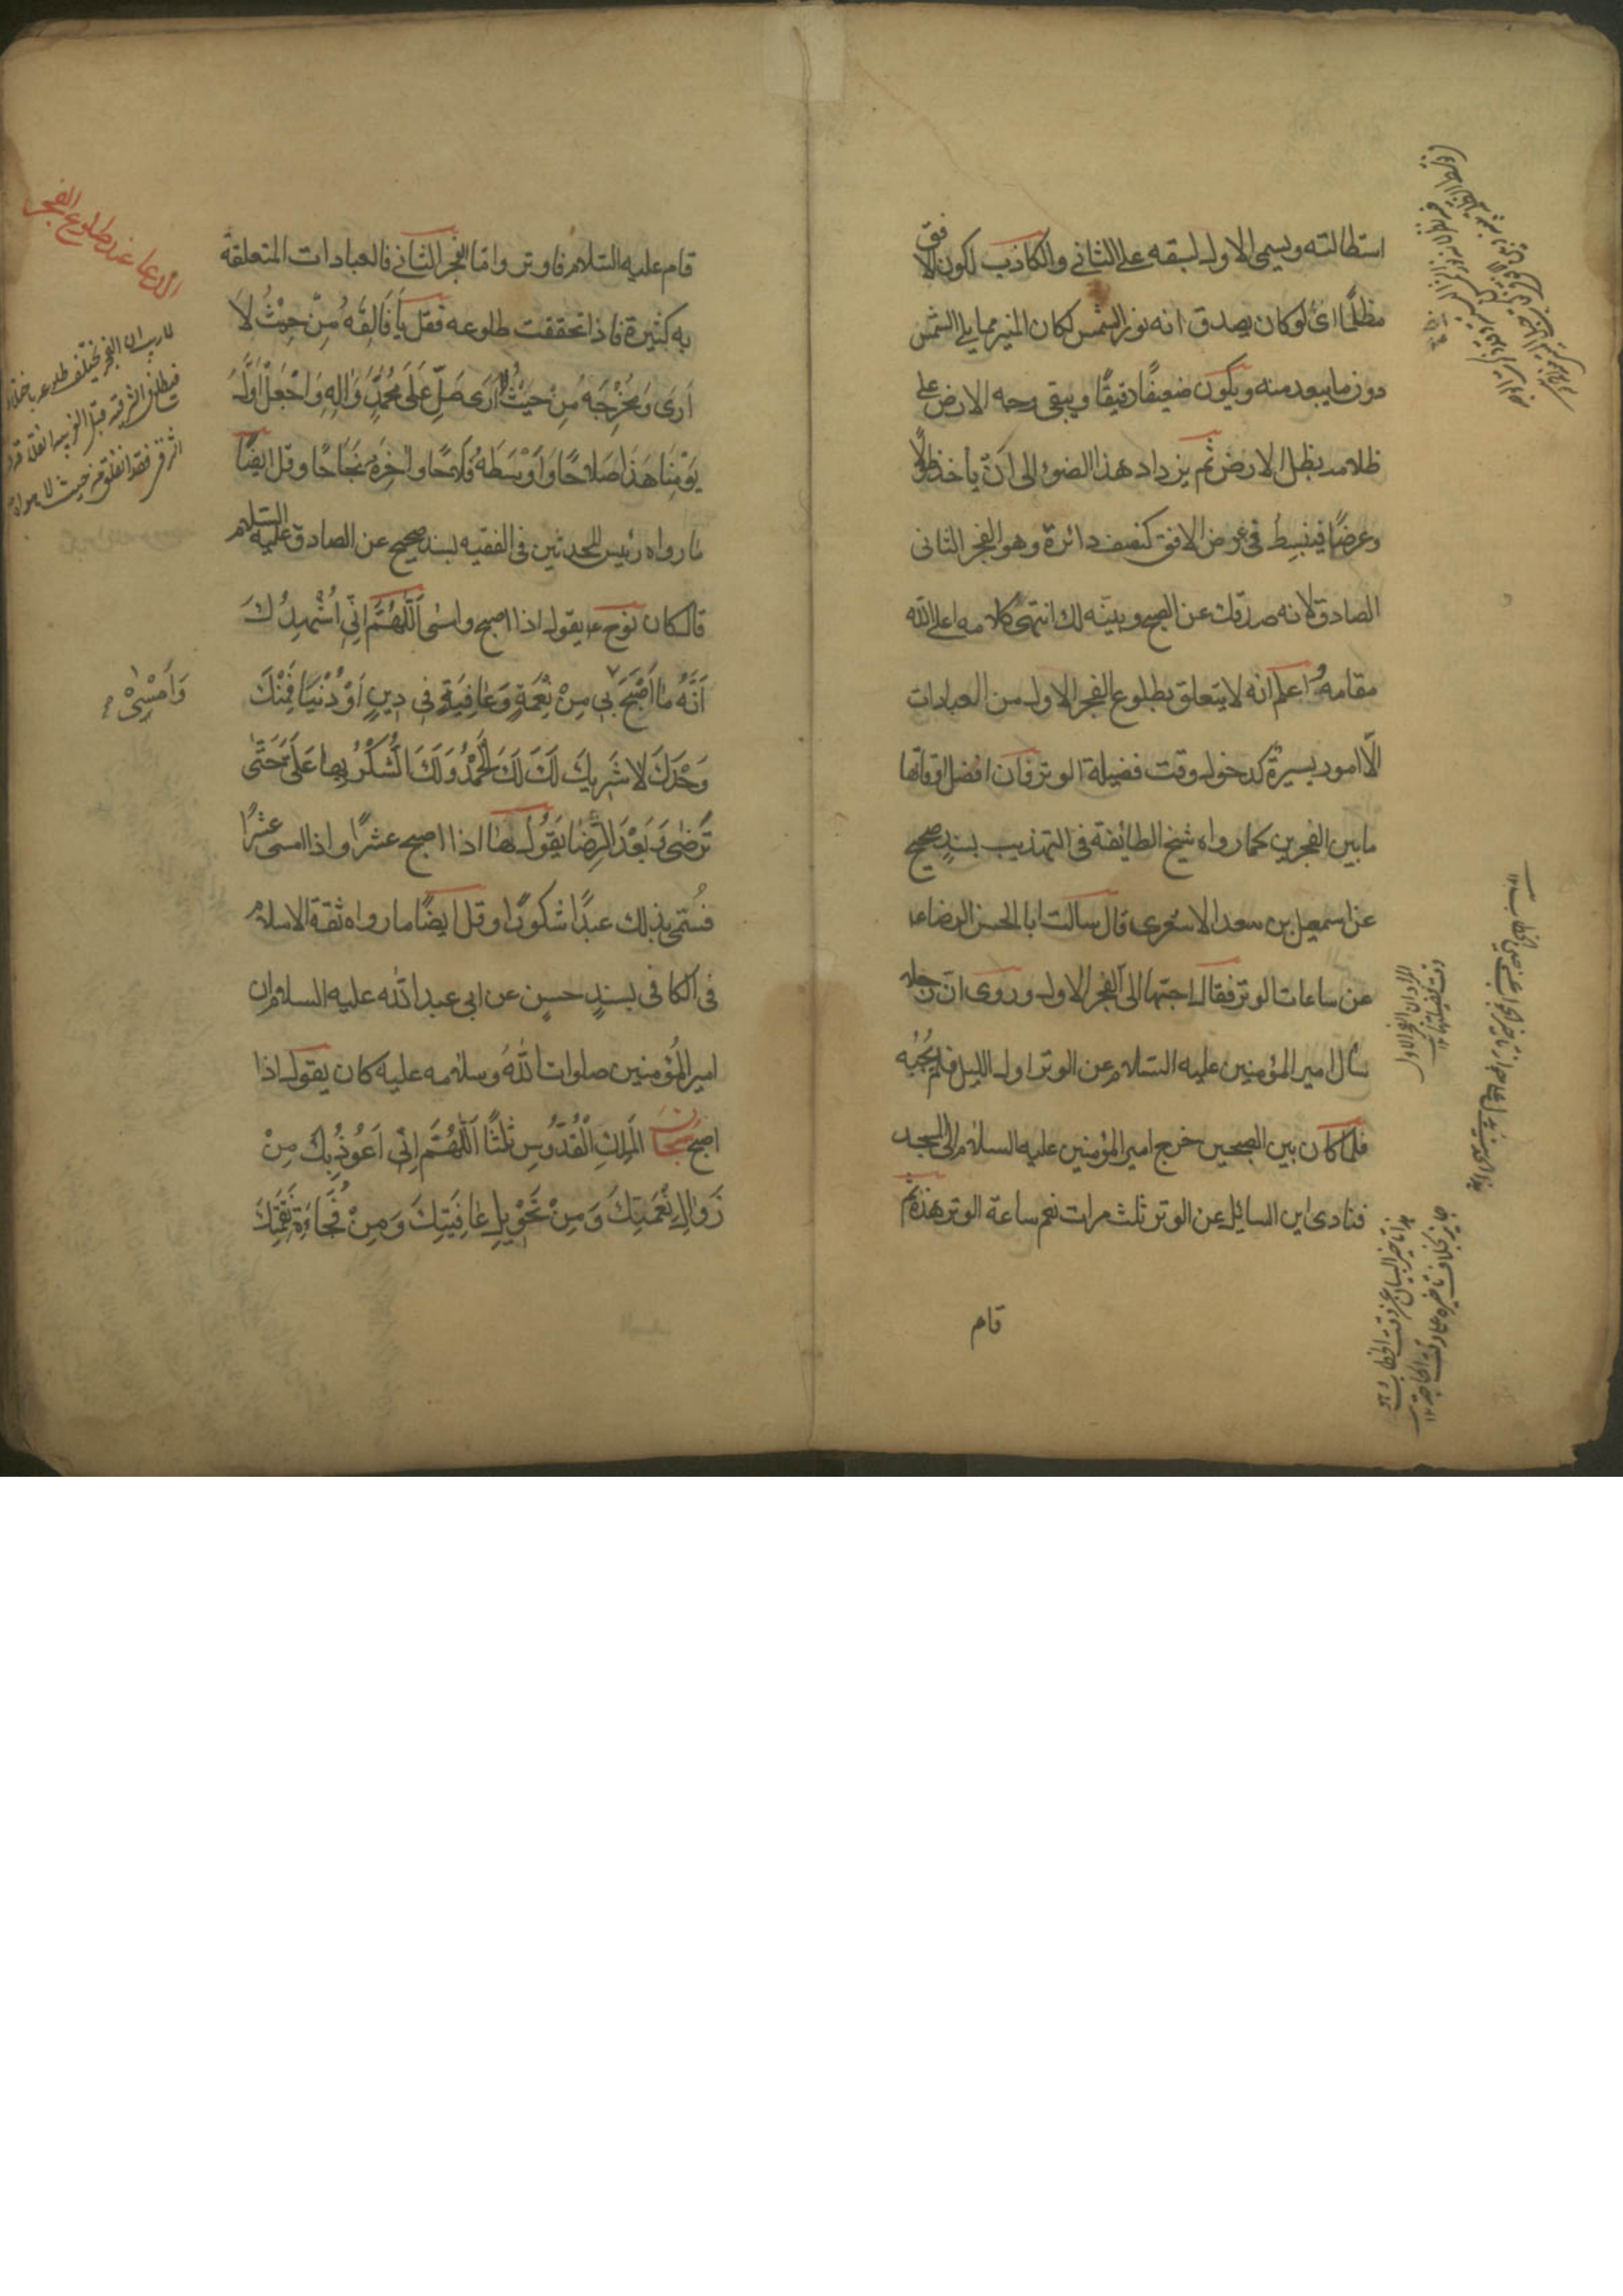 استطالته ويسمى الاول لسبقه على الثاني والكاذب لكون الافق
مظلمًا اى لو كان يصدق انه نور الشمس لكان المنير مما يلى الشمس
دون ما يبعد منه ويكون ضعيفًا دقيقًا ويبقى وجه الارض على
ظلامه بظل الارض ثم يزداد هذا الضوء الى ان ياخذ طولًا
وعرضًا فينبسط فى عرض الافق كنصف دائرة وهو الفجر الثانى
الصادق لانه صدقك عن الصبح وبينه لك انتهى كلامه اعلى الله
مقامه واعلم انه لا يتعلق بطلوع الفجر الاول من العبادات
الّا امور يسيرة كدخول وقت فضيلة الوتر فان افضل اوقاتها
ما بين الفجرين كما رواه شيخ الطائفة فى التهذيب بسند صحيح
عن اسمعيل بن سعد الاشعرى قال سالت ابا الحسن الرضا ع
عن ساعات الوتر فقال احبّها الىّ الفجر الاول وروى انّ رجلا
سأل امير المؤمنين عليه السلام عن الوتر اول الليل فلم يُجِبْه
فلما كان بين الصبحين خرج امير المؤمنين عليه السلام الى المسجد
فنادى اين السائل عن الوتر ثلث مرات نعم ساعة الوتر هذه ثم
قام
قام عليه السلام فاوتر وامّا الفجر الثانى فالعبادات المتعلقة
به كثيرة فاذا تحققت طلوعه فقل يَا فَالِقَهُ مِنْ حَيْثُ لَا
اَرَى وَمُخْرِجَهُ مِنْ حَيْثُ لا اَرَى صَلِّ عَلَى مُحَمَّدٍ وَاٰلِهِ وَاجْعَلْ اَوَّلَ
يَوْمِنَا هَذَا صَلَاحًا وَاَوْسَطَهُ فَلَاحًا وَاٰخِرَهُ نَجَاحًا وقل ايضًا
ما رواه رئيس المحدثين فى الفقيه بسند صحيح عن الصادق عليه السلام
قال كان نوح ع يقول اذا اصبح وامسى اَللّٰهُمَّ اِنِّى اُشْهِدُكَ
اَنَّهُ مَا اَصْبَحَ بِى مِنْ نِعْمَةٍ وَعَافِيَةٍ فِى دِينٍ اَوْ دُنْيَا فَمِنْكَ
وَاَمْسٰى
وَحْدَكَ لَا شَرِيكَ لَكَ لَكَ الْحَمْدُ وَلَكَ الشُّكْرُ بِهَا عَلَىَّ حَتّٰى
تَرْضٰى وَبَعْدَ الرِّضَا يَقُولُ هَا اذا اصبح عشرًا واذا امسى عشرًا
فسُمّى بذلك عبدًا شكورًا وقل ايضًا ما رواه ثقة الاسلام
فى الكافى بسندٍ حسنٍ عن ابى عبد الله عليه السلام ان
امير المؤمنين صلوات الله وسلامه عليه كان يقول اذا
اصبح سُبْحَانَ الْمَلِكِ الْقُدُّوسِ ثَلٰثًا اَللّٰهُمَّ اِنِّى اَعُوذُ بِكَ مِنْ
زَوَالِ نِعْمَتِكَ وَمِنْ تَحْوِيلِ عَافِيَتِكَ وَمِنْ فُجَاءَةِ نَقِمَتِكَ
الدعا عند طلوع الفجر